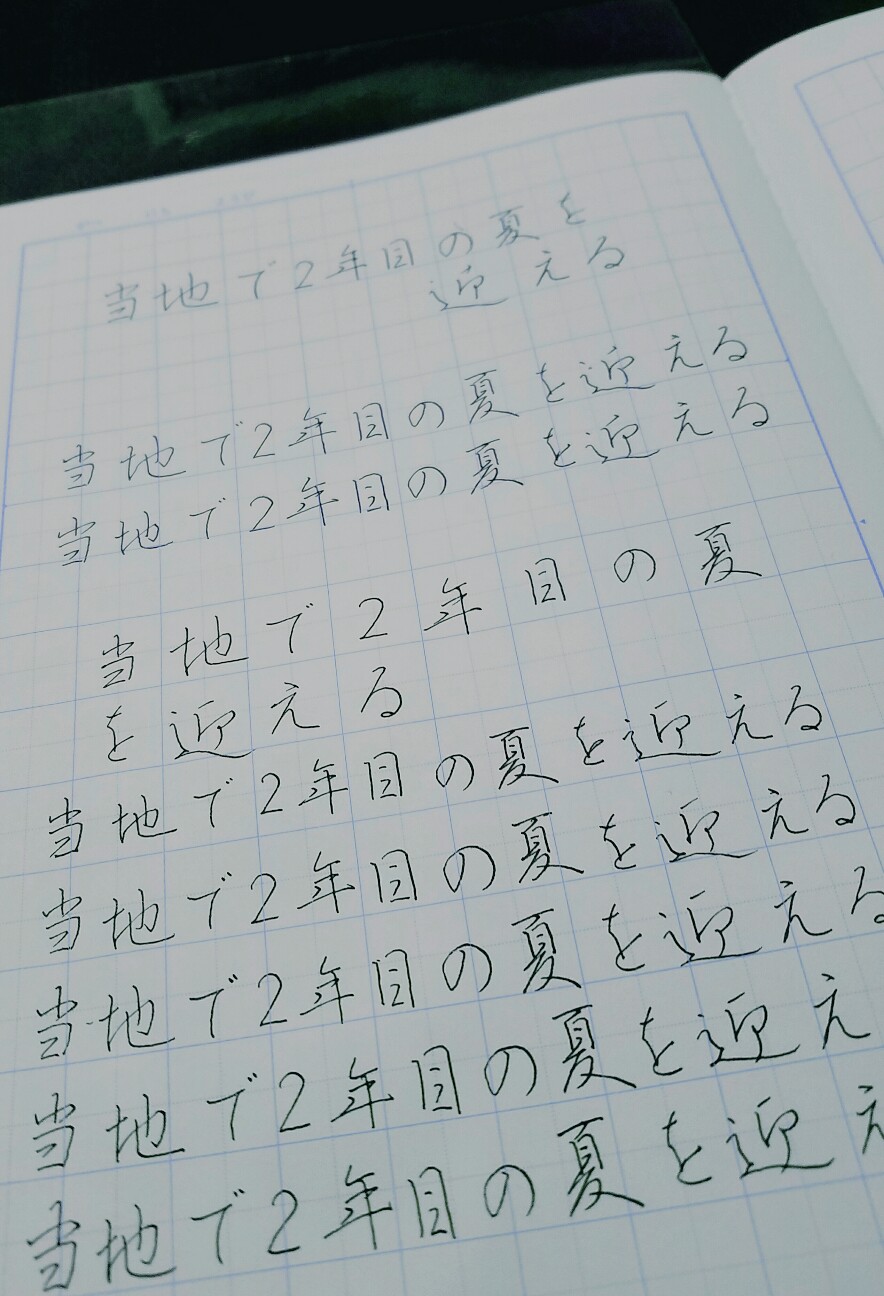 当地で2年目の夏を
迎える
当地で2年目の夏を迎える
当地で2年目の夏を迎える
当地で2年目の夏
を迎える
当地で2年目の夏を迎える
当地で2年目の夏を迎える
当地で2年目の夏を迎える
当地で2年目の夏を迎え
当地で2年目の夏を迎え